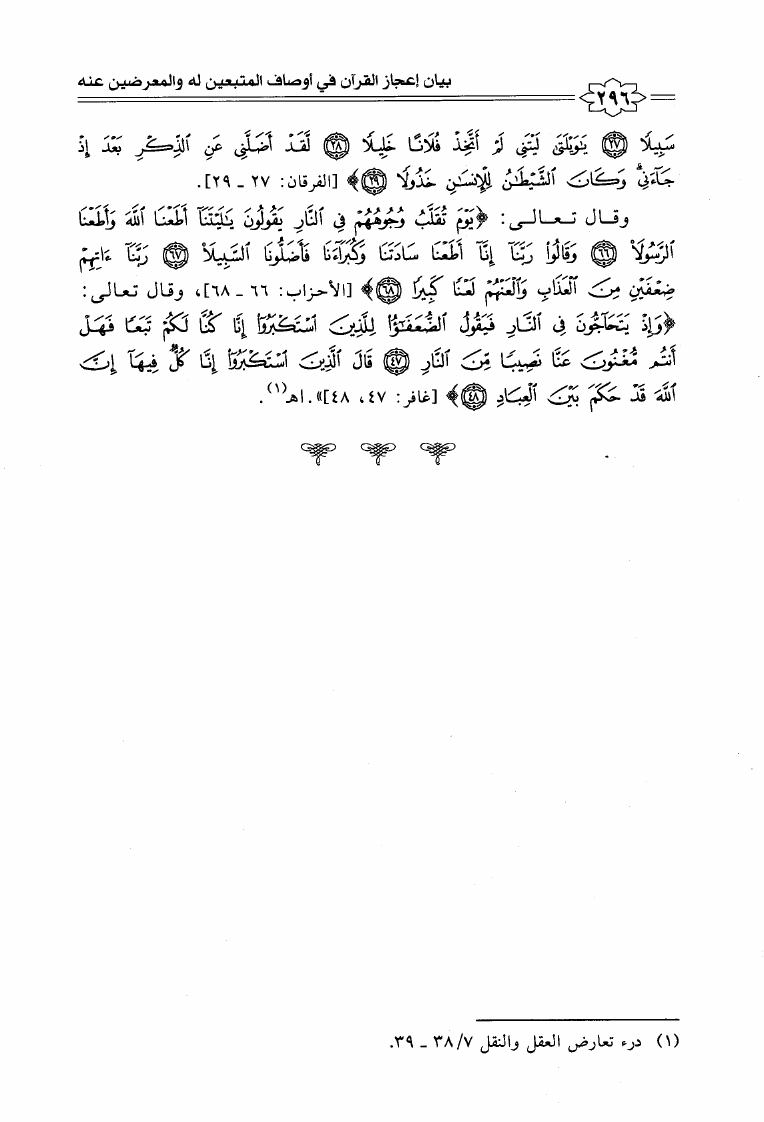 ٢٩٦ بيان إعجاز القرآن في أوصاف المتبعين له والمعرضين عنه
سَبِيلًا ﴿٢٧﴾ يَٰوَيْلَتَىٰ لَيْتَنِي لَمْ أَتَّخِذْ فُلَانًا خَلِيلًا ﴿٢٨﴾ لَّقَدْ أَضَلَّنِي عَنِ ٱلذِّكْرِ بَعْدَ إِذْ
جَآءَنِي ۗ وَكَانَ ٱلشَّيْطَٰنُ لِلْإِنسَٰنِ خَذُولًا ﴿٢٩﴾﴾ [الفرقان: ٢٧ ـ ٢٩].
وقال تعالى: ﴿يَوْمَ تُقَلَّبُ وُجُوهُهُمْ فِي ٱلنَّارِ يَقُولُونَ يَٰلَيْتَنَآ أَطَعْنَا ٱللَّهَ وَأَطَعْنَا
ٱلرَّسُولَا۠ ﴿٦٦﴾ وَقَالُوا۟ رَبَّنَآ إِنَّآ أَطَعْنَا سَادَتَنَا وَكُبَرَآءَنَا فَأَضَلُّونَا ٱلسَّبِيلَا۠ ﴿٦٧﴾ رَبَّنَآ ءَاتِهِمْ
ضِعْفَيْنِ مِنَ ٱلْعَذَابِ وَٱلْعَنْهُمْ لَعْنًا كَبِيرًا ﴿٦٨﴾﴾ [الأحزاب: ٦٦ ـ ٦٨]، وقال تعالى:
﴿وَإِذْ يَتَحَآجُّونَ فِي ٱلنَّارِ فَيَقُولُ ٱلضُّعَفَٰٓؤُا۟ لِلَّذِينَ ٱسْتَكْبَرُوٓا۟ إِنَّا كُنَّا لَكُمْ تَبَعًا فَهَلْ
أَنتُم مُّغْنُونَ عَنَّا نَصِيبًا مِّنَ ٱلنَّارِ ﴿٤٧﴾ قَالَ ٱلَّذِينَ ٱسْتَكْبَرُوٓا۟ إِنَّا كُلٌّ فِيهَآ إِنَّ
ٱللَّهَ قَدْ حَكَمَ بَيْنَ ٱلْعِبَادِ ﴿٤٨﴾﴾ [غافر: ٤٧، ٤٨]». اهـ(١).
(١) درء تعارض العقل والنقل ٣٨/٧ ـ ٣٩.